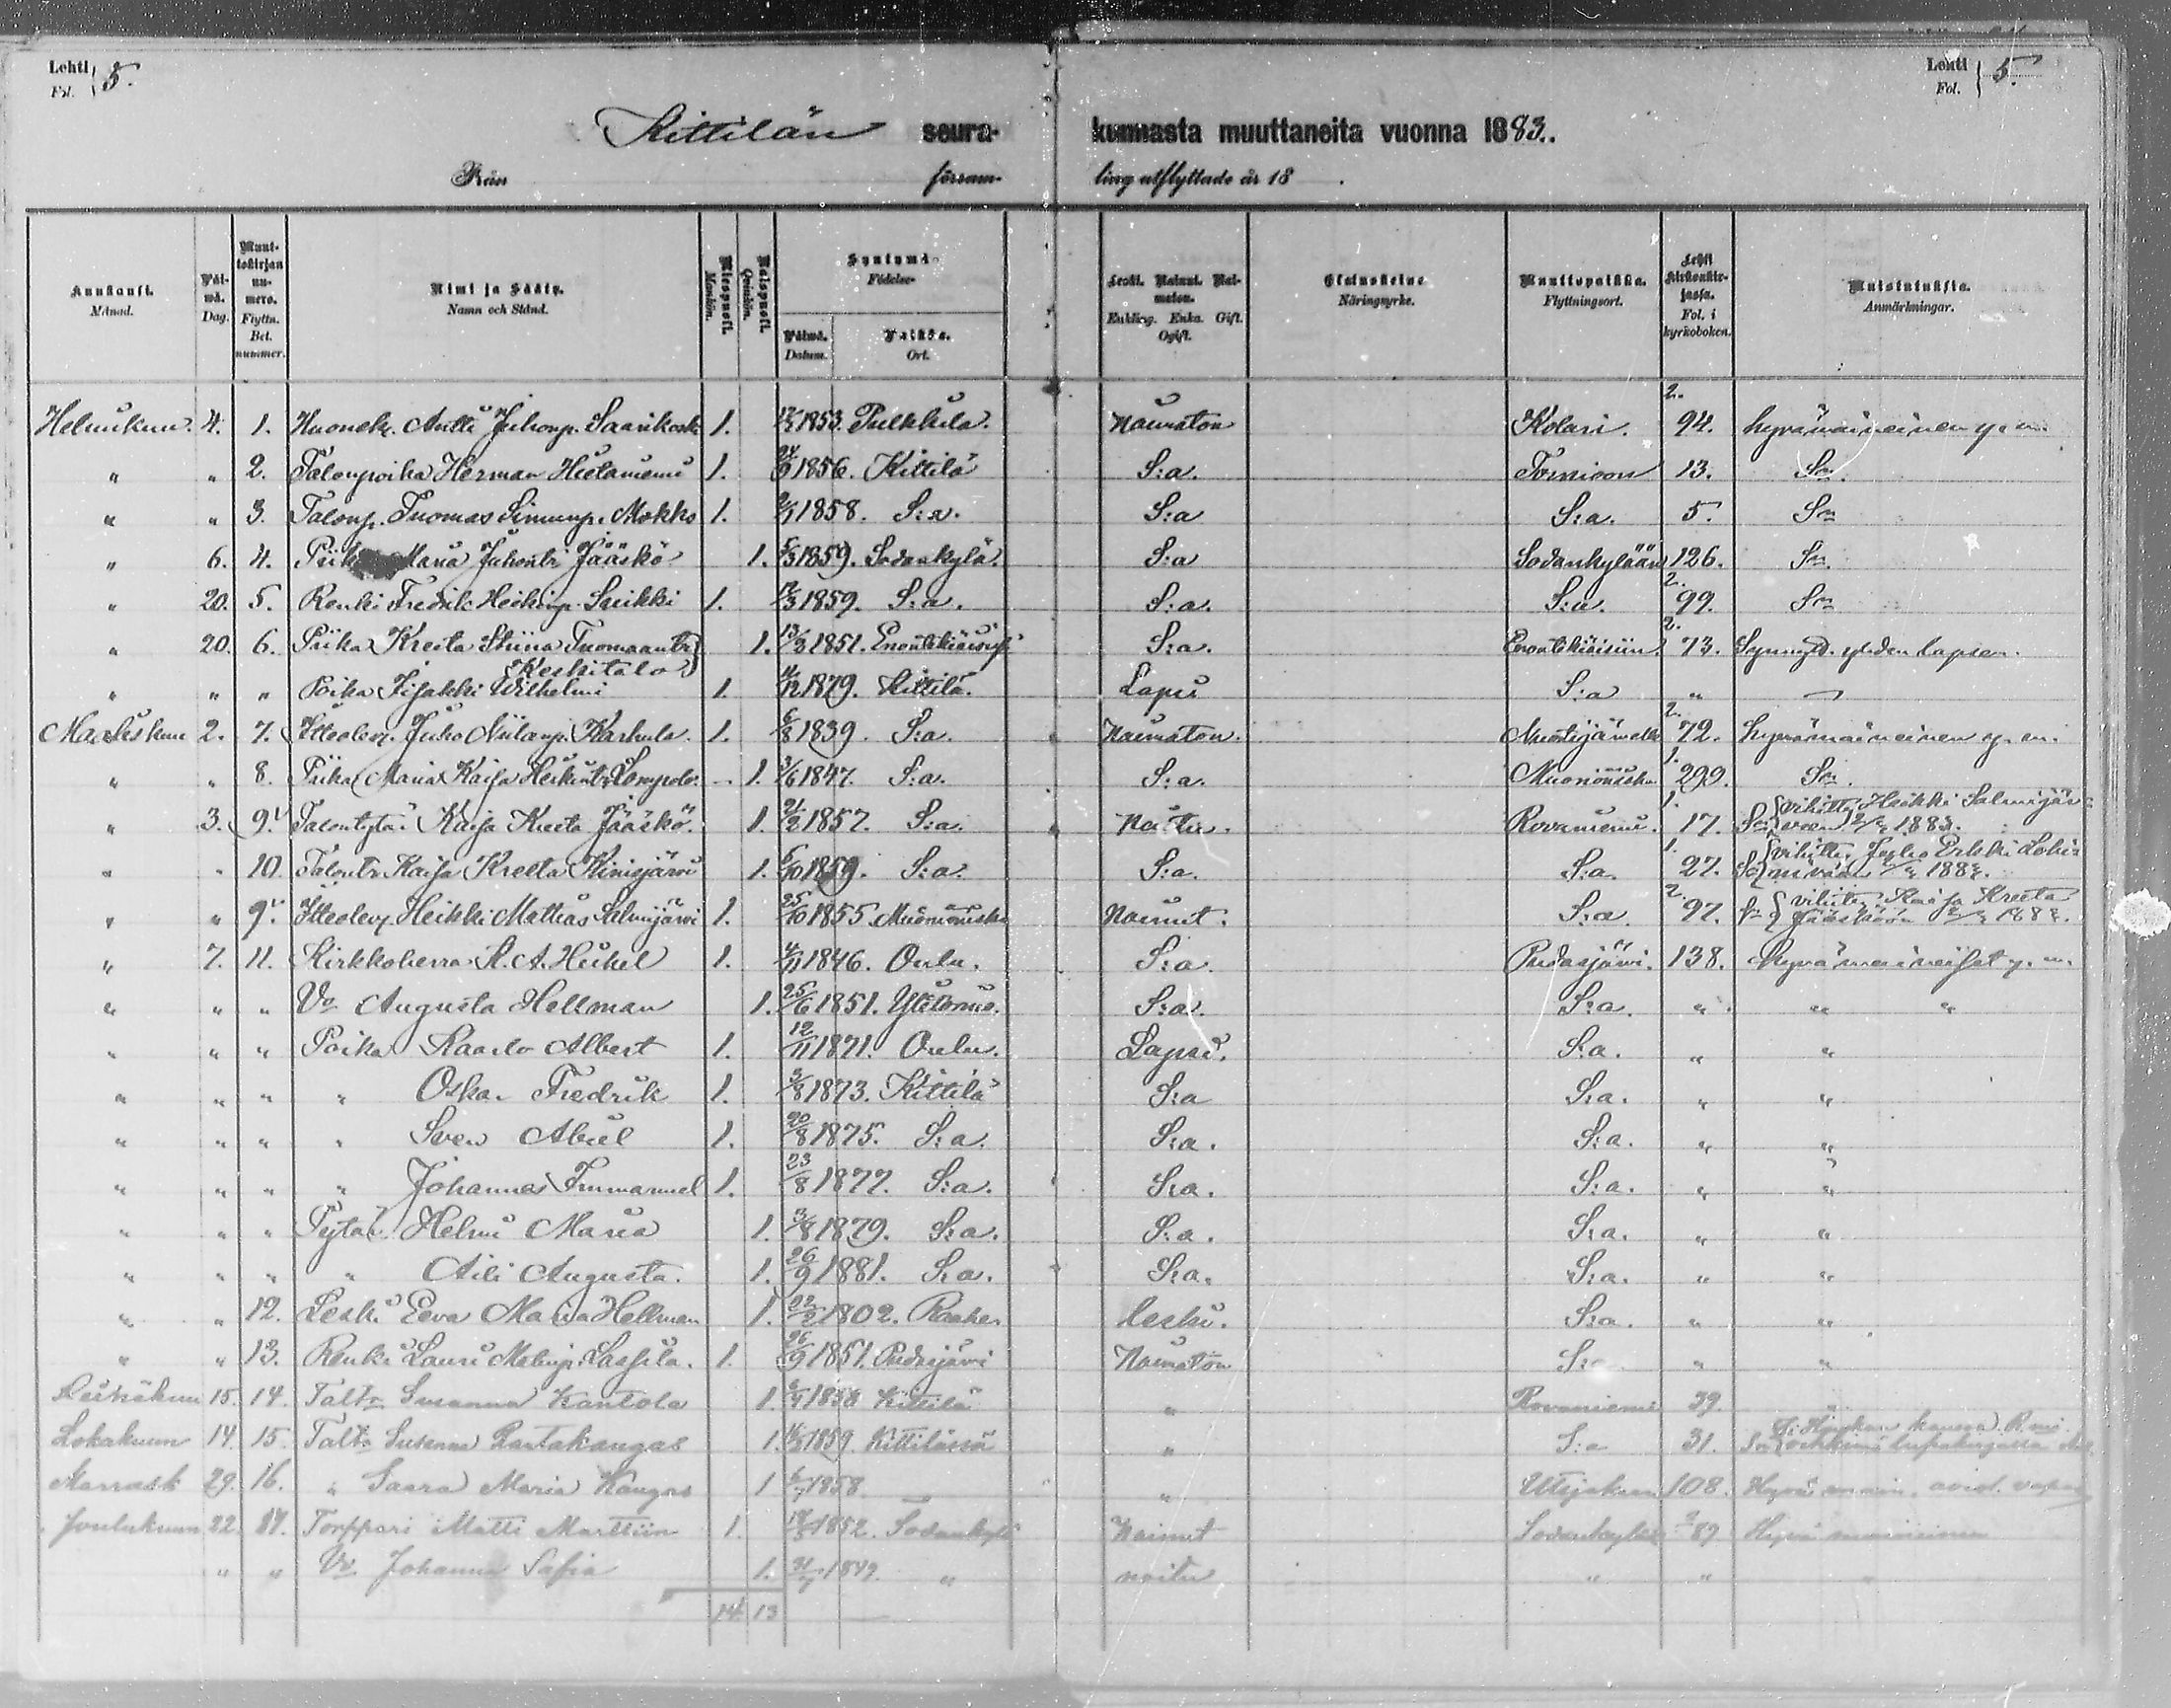 Lehti Fol. } 5.
Lehti Fol. } 5.
Kittilän seura-kunnasta muuttaneita vuonna 1883.
Från försam-ling utflyttade år 18 .
Kuukausi. Månad.
Päi-wä. Dag.
Muut-tokirjan nu-mero. Flyttn. Bet. nummer.
Nimi ja Sääty. Namn och Stånd.
Miespuoli. Mankön.
Naispuoli. Qvinkön.
Syntymä- Födelse-
Päiwä. Datum.
Paikka. Ort.
Leski. Nainut. Nai-maton. Enkling. Enka. Gift. Ogift.
Elatuskeino Näringsyrke.
Muuttopaikka. Flyttningsort.
Lehti kirkonkir-jassa. Fol. i kyrkoboken.
Muistutuksia. Anmärkningar.
Helmikuu. 4. 1. Huonek. Antti Juhonp. Saarikoski 1. 1853. Pulkkila. Naimaton Kolari. 2. 94. hyvämaineinen y. m.
" " 2. Talonpoika Herman Hietaniemi 1. 24/9 1856. Kittilä S:a. Tornioon 13. S:n.
" " 3. Talonp. Tuomas Simunp. Mokko 1. 1858. S:a. S:a S:a. 5. S:n
" 6. 4. Piika Maria Juhontr Jääskö 1. 5/3 1859. Sodankylä. S:a Sodankylään 126. S:n.
" 20. 5. Renki Fredrik Heikinp. Suikki 1. 12/3 1859. S:a. S:a. S:a. 2. 99. S:n
" 20. 6. Piika Kreeta Stiina Tuomaantr Keskitalo 1. 13/3 1851. S:a. Enontekiäisiin. 2. 73. Synnytt. yhden lapsen.
" " " Poika Iisakki Wilhelmi 1. 11/12 1879. Kittilä. Lapsi S:a "
Maaliskuu 2. 7. Itsellev. Juho Niilanp. Karhula. 1. 6/8 1839. S:a. Naimaton. 2. 72. hyvämaineinen y. m.
" " 8. Piika Maria Kaisa Heikintr Lompolo. 1. 3/6 1847. S:a. S:a. Muonionniska 1. 299. S:n.
" 3. 9. Talontytär Kaisa Kreeta Jääskö. 1. 21/2 1857. S:a. Naitu. Rovaniemi. 1. 17. S:n { vihitty Heikki Salmijärveen 1883.
" " 10. Talontr Kaisa Kreeta Kinisjärvi 1. 6/10 1859. S:a. S:a. S:a. 1. 27. { vihitty
" " 9. Itsellev. Heikki Mattias Salmijärvi 1. 25/10 1855. Muonionniska Nainut. S:a. 2. 97. { vihitty Kaisa Kreeta Jääsköön
" 7. 11. Kirkkoherra K. A. Heikel 1. 4/11 1846. Oulu. S:a. Pudasjärvi. 138. hyvämaineiset y. m.
" " " Vo Augusta Hellman 1. 25/6 1851. Ylitornio. S:a. S:a. " " "
" " " Poika Kaarlo Albert 1. 12/11 1871. Oulu. Lapsi. S:a. " "
" " " " Oskar Fredrik 1. 3/8 1873. Kittilä S:a S:a. " "
" " " " Sven Abiel 1. 20/8 1875. S:a. S:a. S:a. " "
" " " " Johannes Immanuel 1. 23/8 1877. S:a. S:a. S:a. " "
" " " Tytär Helmi Maria 1. 3/8 1879. S:a. S:a. S:a. " "
" " " " Aili Augusta. 1. 26/9 1881. S:a. S:a. S:a. " "
" " 12. Leski Eeva Maria Hellman 1. 22/2 1802. Raahe. leski. S:a. " "
" " 13. Renki Lauri Lassila. 1. 26/9 1851. Pudasjärvi Naimaton S:a " "
15. 14. Taltr Susanna Kantola 1. Kittilä " Rovaniemi 39. "
Lokakuun 14. 15. Taltr Susanna Rantakangas 1. 1859. Kittilässä " S:a 31.
Marrask 29. 16. " Saara Maria Kangas 1 1858. " " Utsjokeen 108. Hyvä main.
Joulukuun 22. 17. Torppari Matti Marttiin 1. 1852. Sodankylä Nainut Sodankylä 2 89 Hyvä maininen
" " Vo. Johanna Sofia 1. 1849. " naitu " " "
14 13